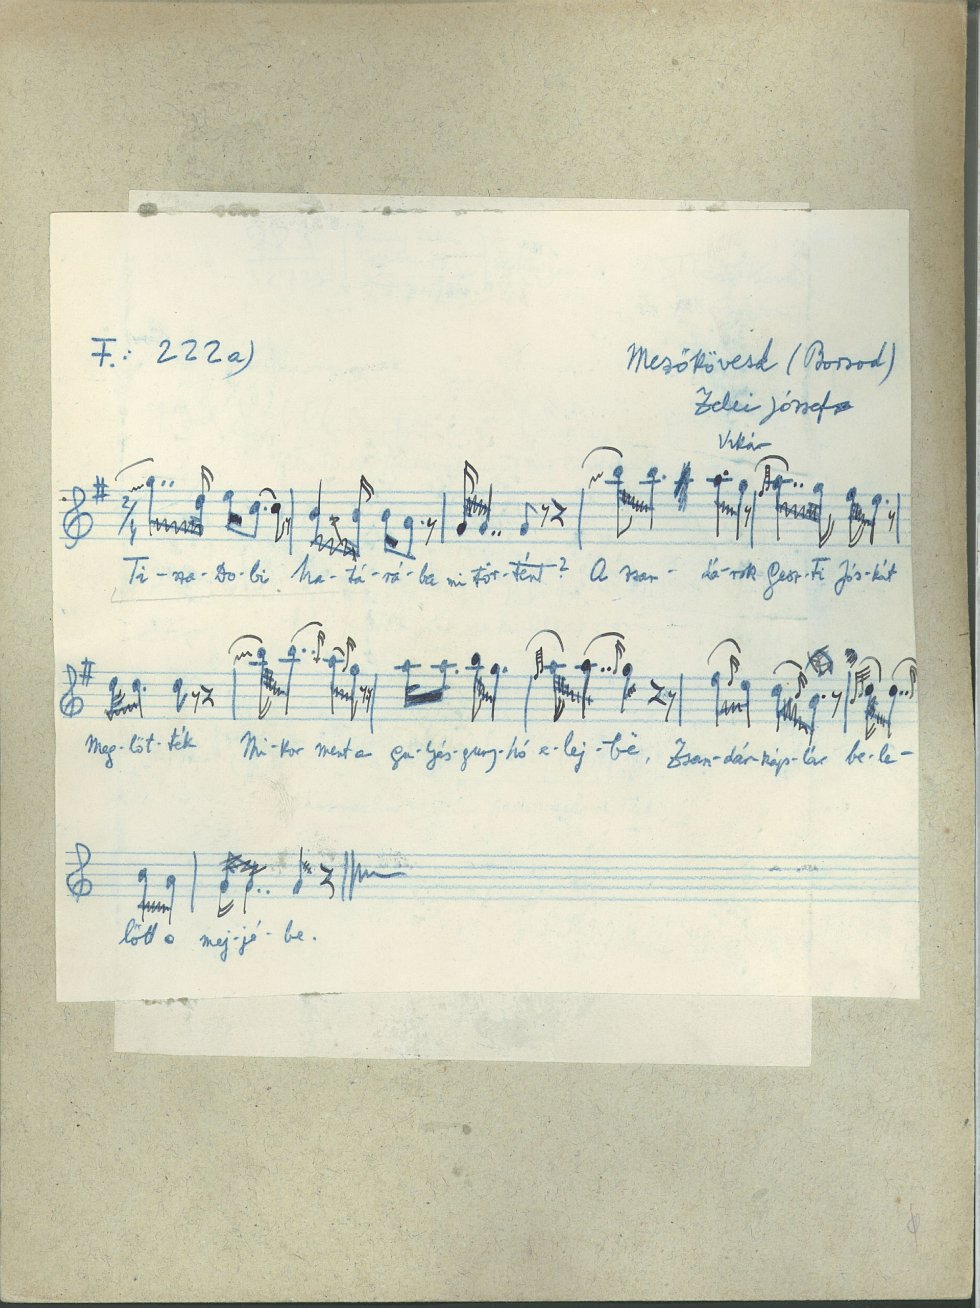 F.: 222a)
Mezőkövesd (Borsod)
Zelei József
Vikár
2/4
Ti-sza-Do-bi ha-tá-rá-ba mi tör-tént? A zsan-dá-rok Gesz-ti Jós-kát
meg-löt-ték Mi-kor ment a gu-lyás-guny-hó e-lej-be, Zsan-dár-káp-lár be-le-
lőtt a mej-jé-be.